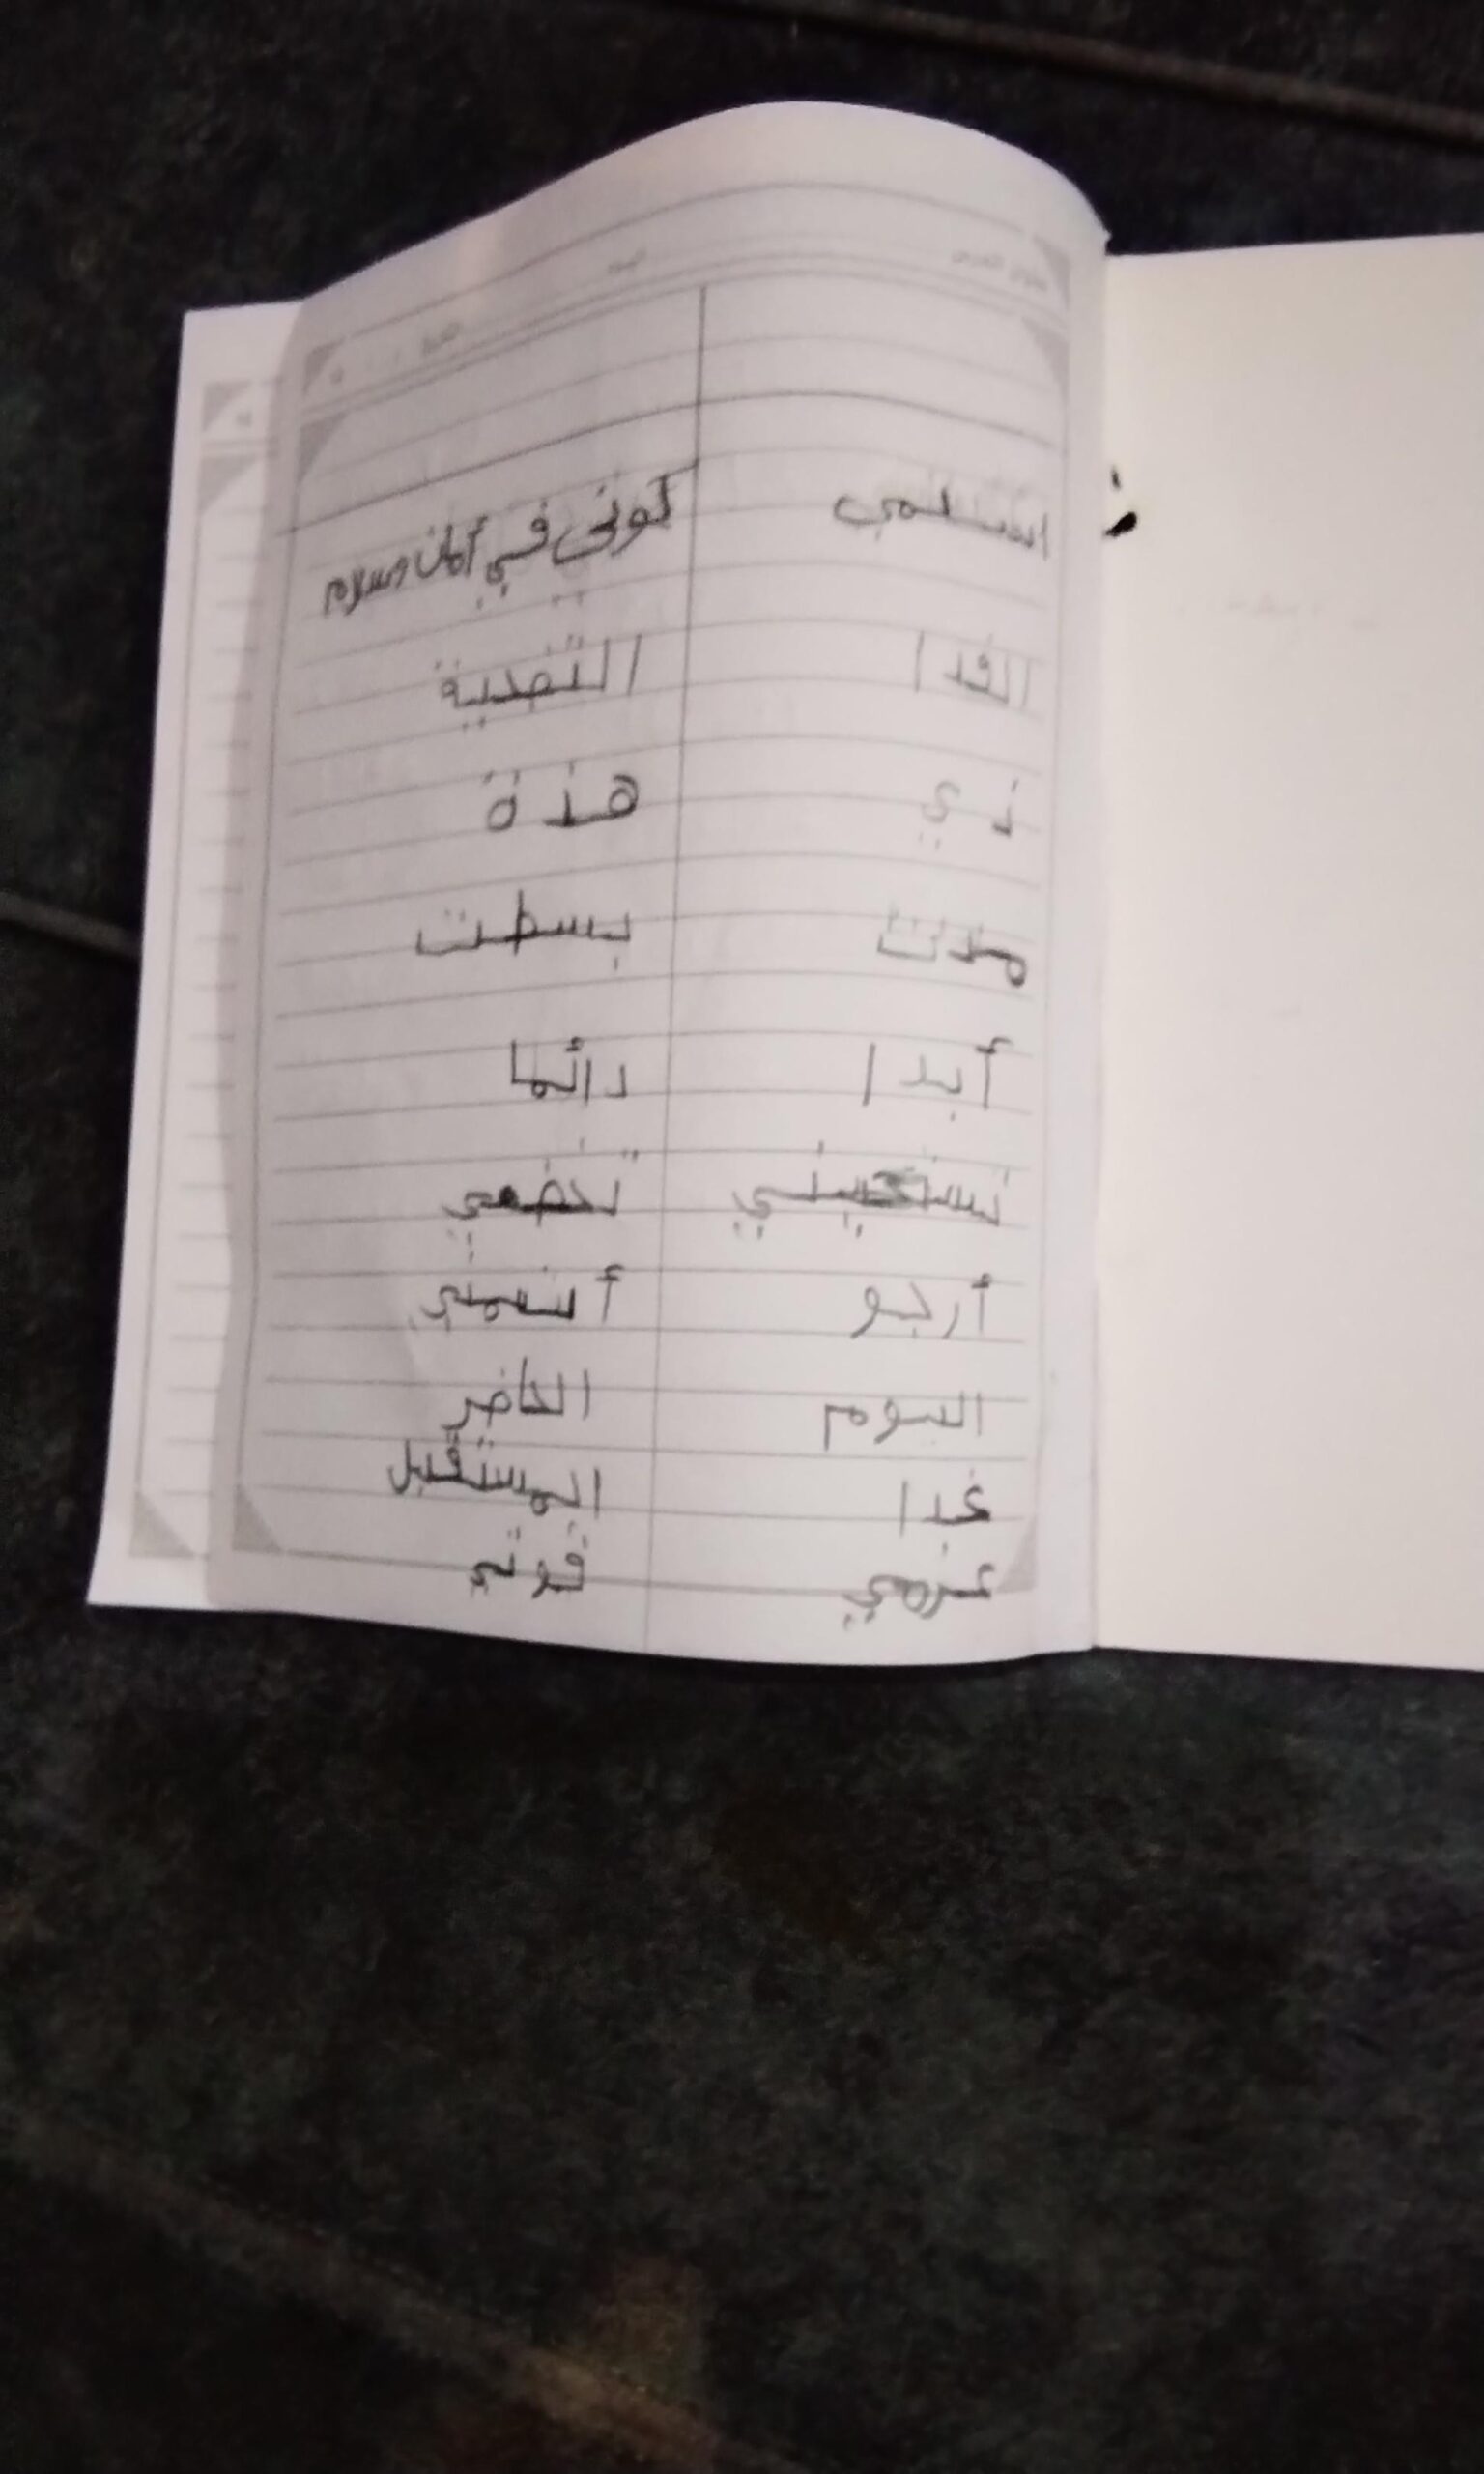 اسلمي كوني في أمان وسلام
الفدا التضحية
ذي هذة
مدت بسطت
أبدا دائما
تخضعي
أرجو أسمى
اليوم الحاضر
غدا المستقبل
عزمي قوتي